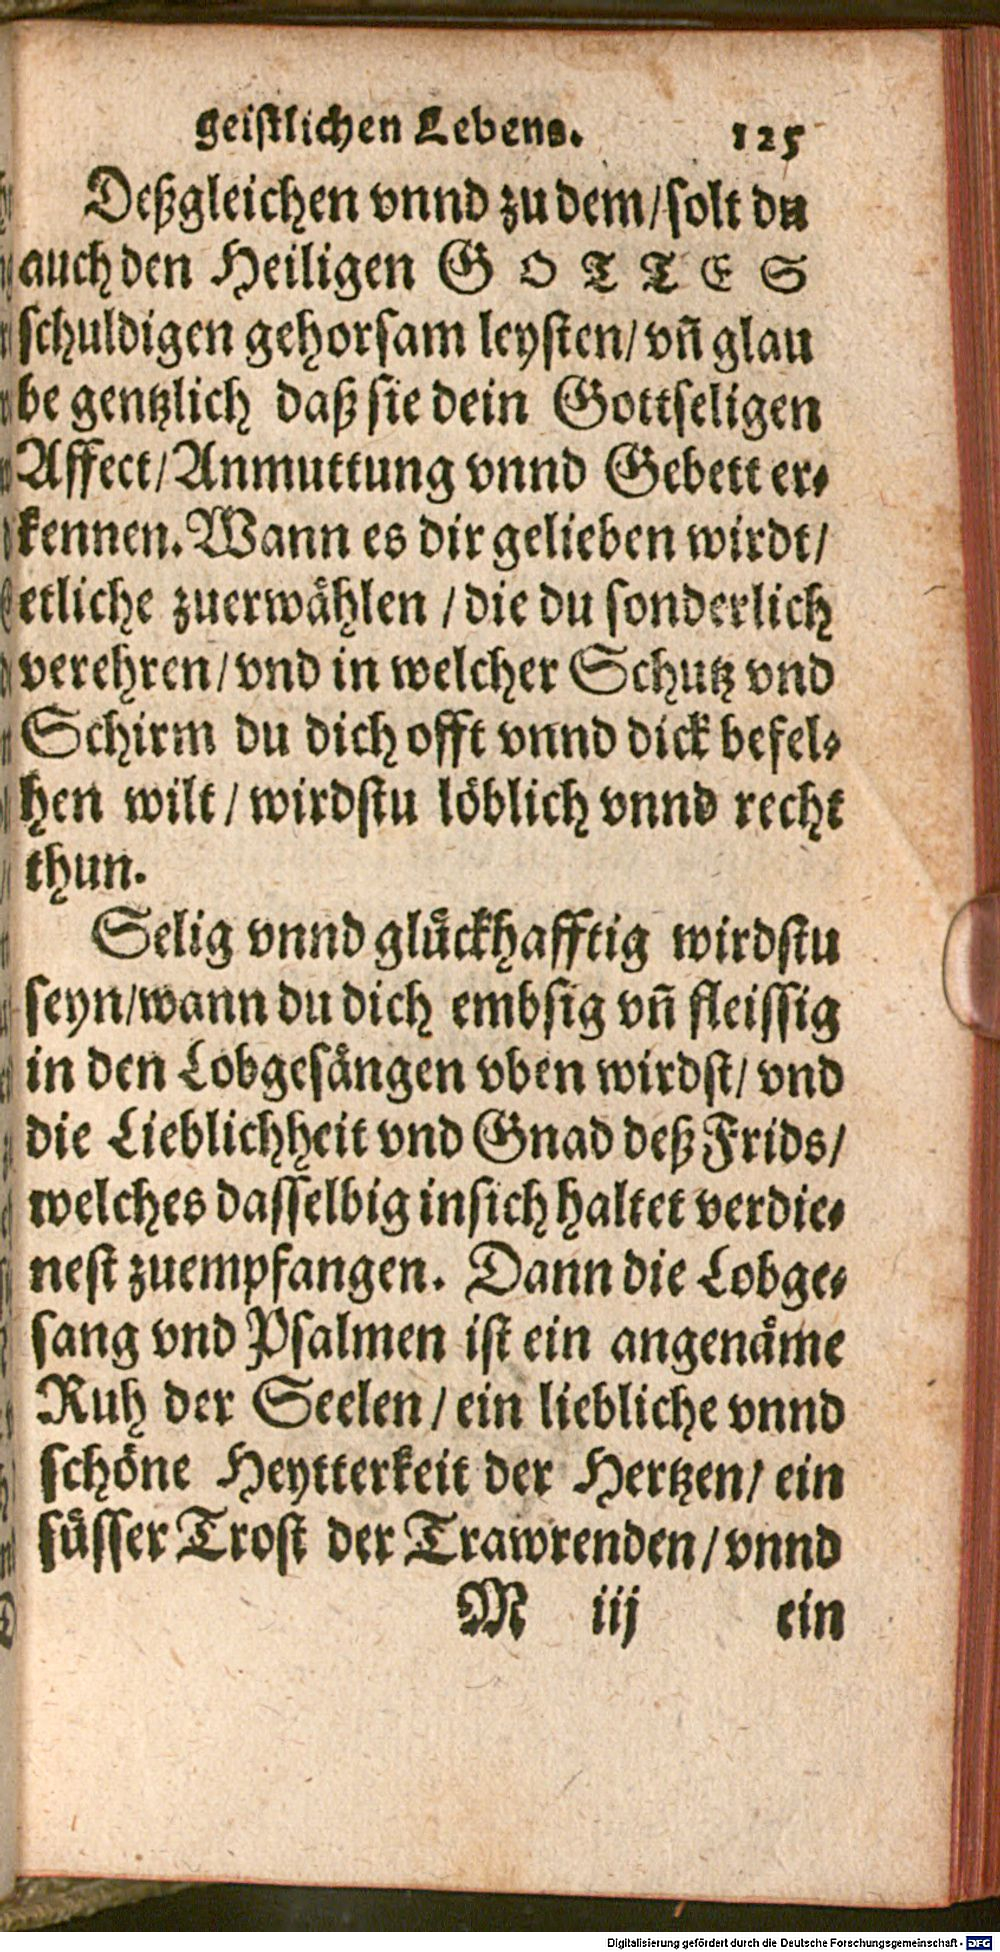 geistlichen Lebens. 125
Deßgleichen vnnd zu dem/ solt du
auch den Heiligen GOTTES
schuldigen gehorsam leysten/ vñ glau
be gentzlich daß sie dein Gottseligen
Affect/ Anmuttung vnnd Gebett er-
kennen. Wann es dir gelieben wirdt/
etliche zuerwählen / die du sonderlich
verehren/ vnd in welcher Schutz vnd
Schirm du dich offt vnnd dick befel-
hen wilt / wirdstu löblich vnnd recht
thun.
Selig vnnd glückhafftig wirdstu
seyn/ wann du dich embsig vñ fleissig
in den Lobgesängen vben wirdst/ vnd
die Lieblichheit vnd Gnad deß Frids/
welches dasselbig insich haltet verdie-
nest zuempfangen. Dann die Lobge-
sang vnd Psalmen ist ein angenäme
Ruh der Seelen / ein liebliche vnnd
schöne Heytterkeit der Hertzen/ ein
süsser Trost der Trawrenden / vnnd
M iij ein
Digitalisierung gefördert durch die Deutsche Forschungsgemeinschaft - DFG